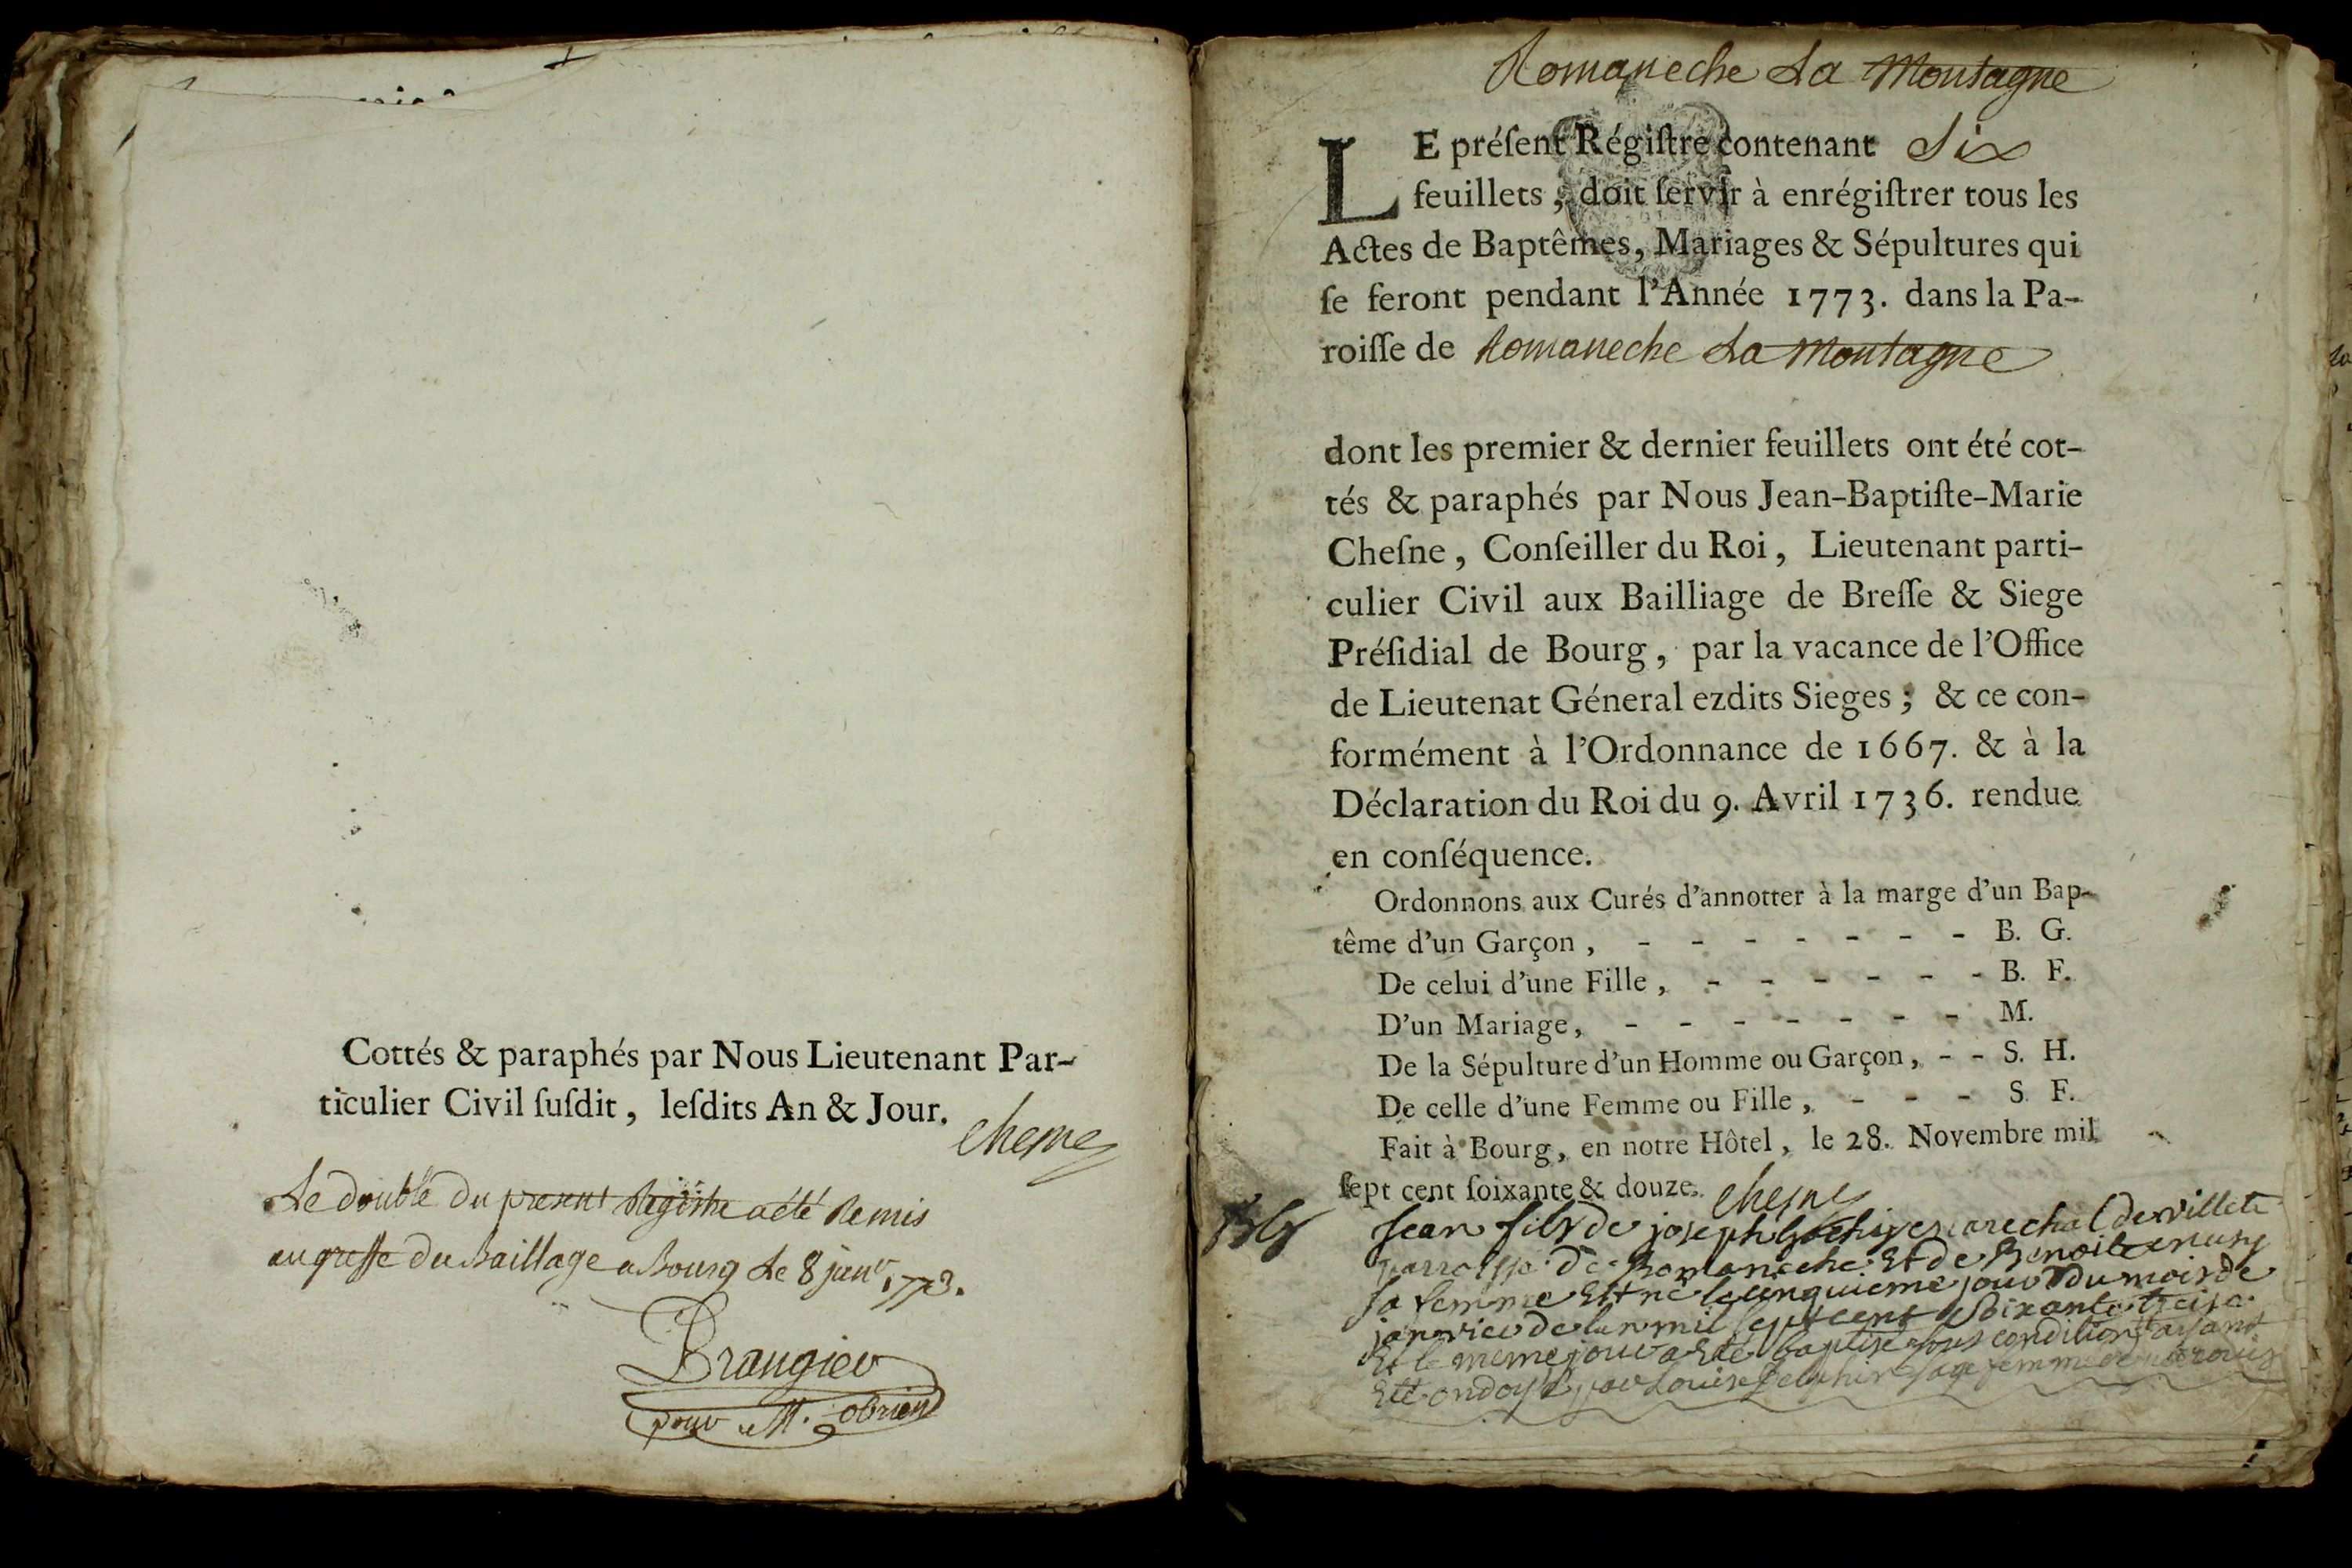 Cottés & paraphés par Nous Lieutenant Par-
ticulier Civil ſuſdit, leſdits An & Jour.
Cheſne
Le double du present Registre a été Remis
au greffe du Baillage a Bourg Le 8 janv.r 1773.
Brangier
pour M. obrien
Romaneche La Montagne
LE préſent Régiſtre contenant Six
feuillets, doit ſervir à enrégiſtrer tous les
Actes de Baptêmes, Mariages & Sépultures qui
ſe feront pendant l'Année 1773. dans la Pa-
roiſſe de Romaneche La Montagne
dont les premier & dernier feuillets ont été cot-
tés & paraphés par Nous Jean-Baptiſte-Marie
Cheſne, Conſeiller du Roi, Lieutenant parti-
culier Civil aux Bailliage de Breſſe & Siege
Préſidial de Bourg, par la vacance de l'Office
de Lieutenat Géneral ezdits Sieges; & ce con-
formément à l'Ordonnance de 1667. & à la
Déclaration du Roi du 9. Avril 1736. rendue
en conſéquence.
Ordonnons aux Curés d'annotter à la marge d'un Bap-
tême d'un Garçon, - - - - - - - B. G.
De celui d'une Fille, - - - - - - B. F.
D'un Mariage, - - - - - - - M.
De la Sépulture d'un Homme ou Garçon, - - S. H.
De celle d'une Femme ou Fille, - - - S. F.
Fait à Bourg, en notre Hôtel, le 28. Novembre mil
ſept cent ſoixante & douze. Cheſne
Jean fils de joseph marechal de villete
parroisse de Romaneche Et de Benoite
sa femme Est né le cinquieme jour du mois de
janvier de lan mil sept cent soixante treise
Et le meme jour a Eté baptisé sous condition ayant
Eté ondoyé par Louise sage femme